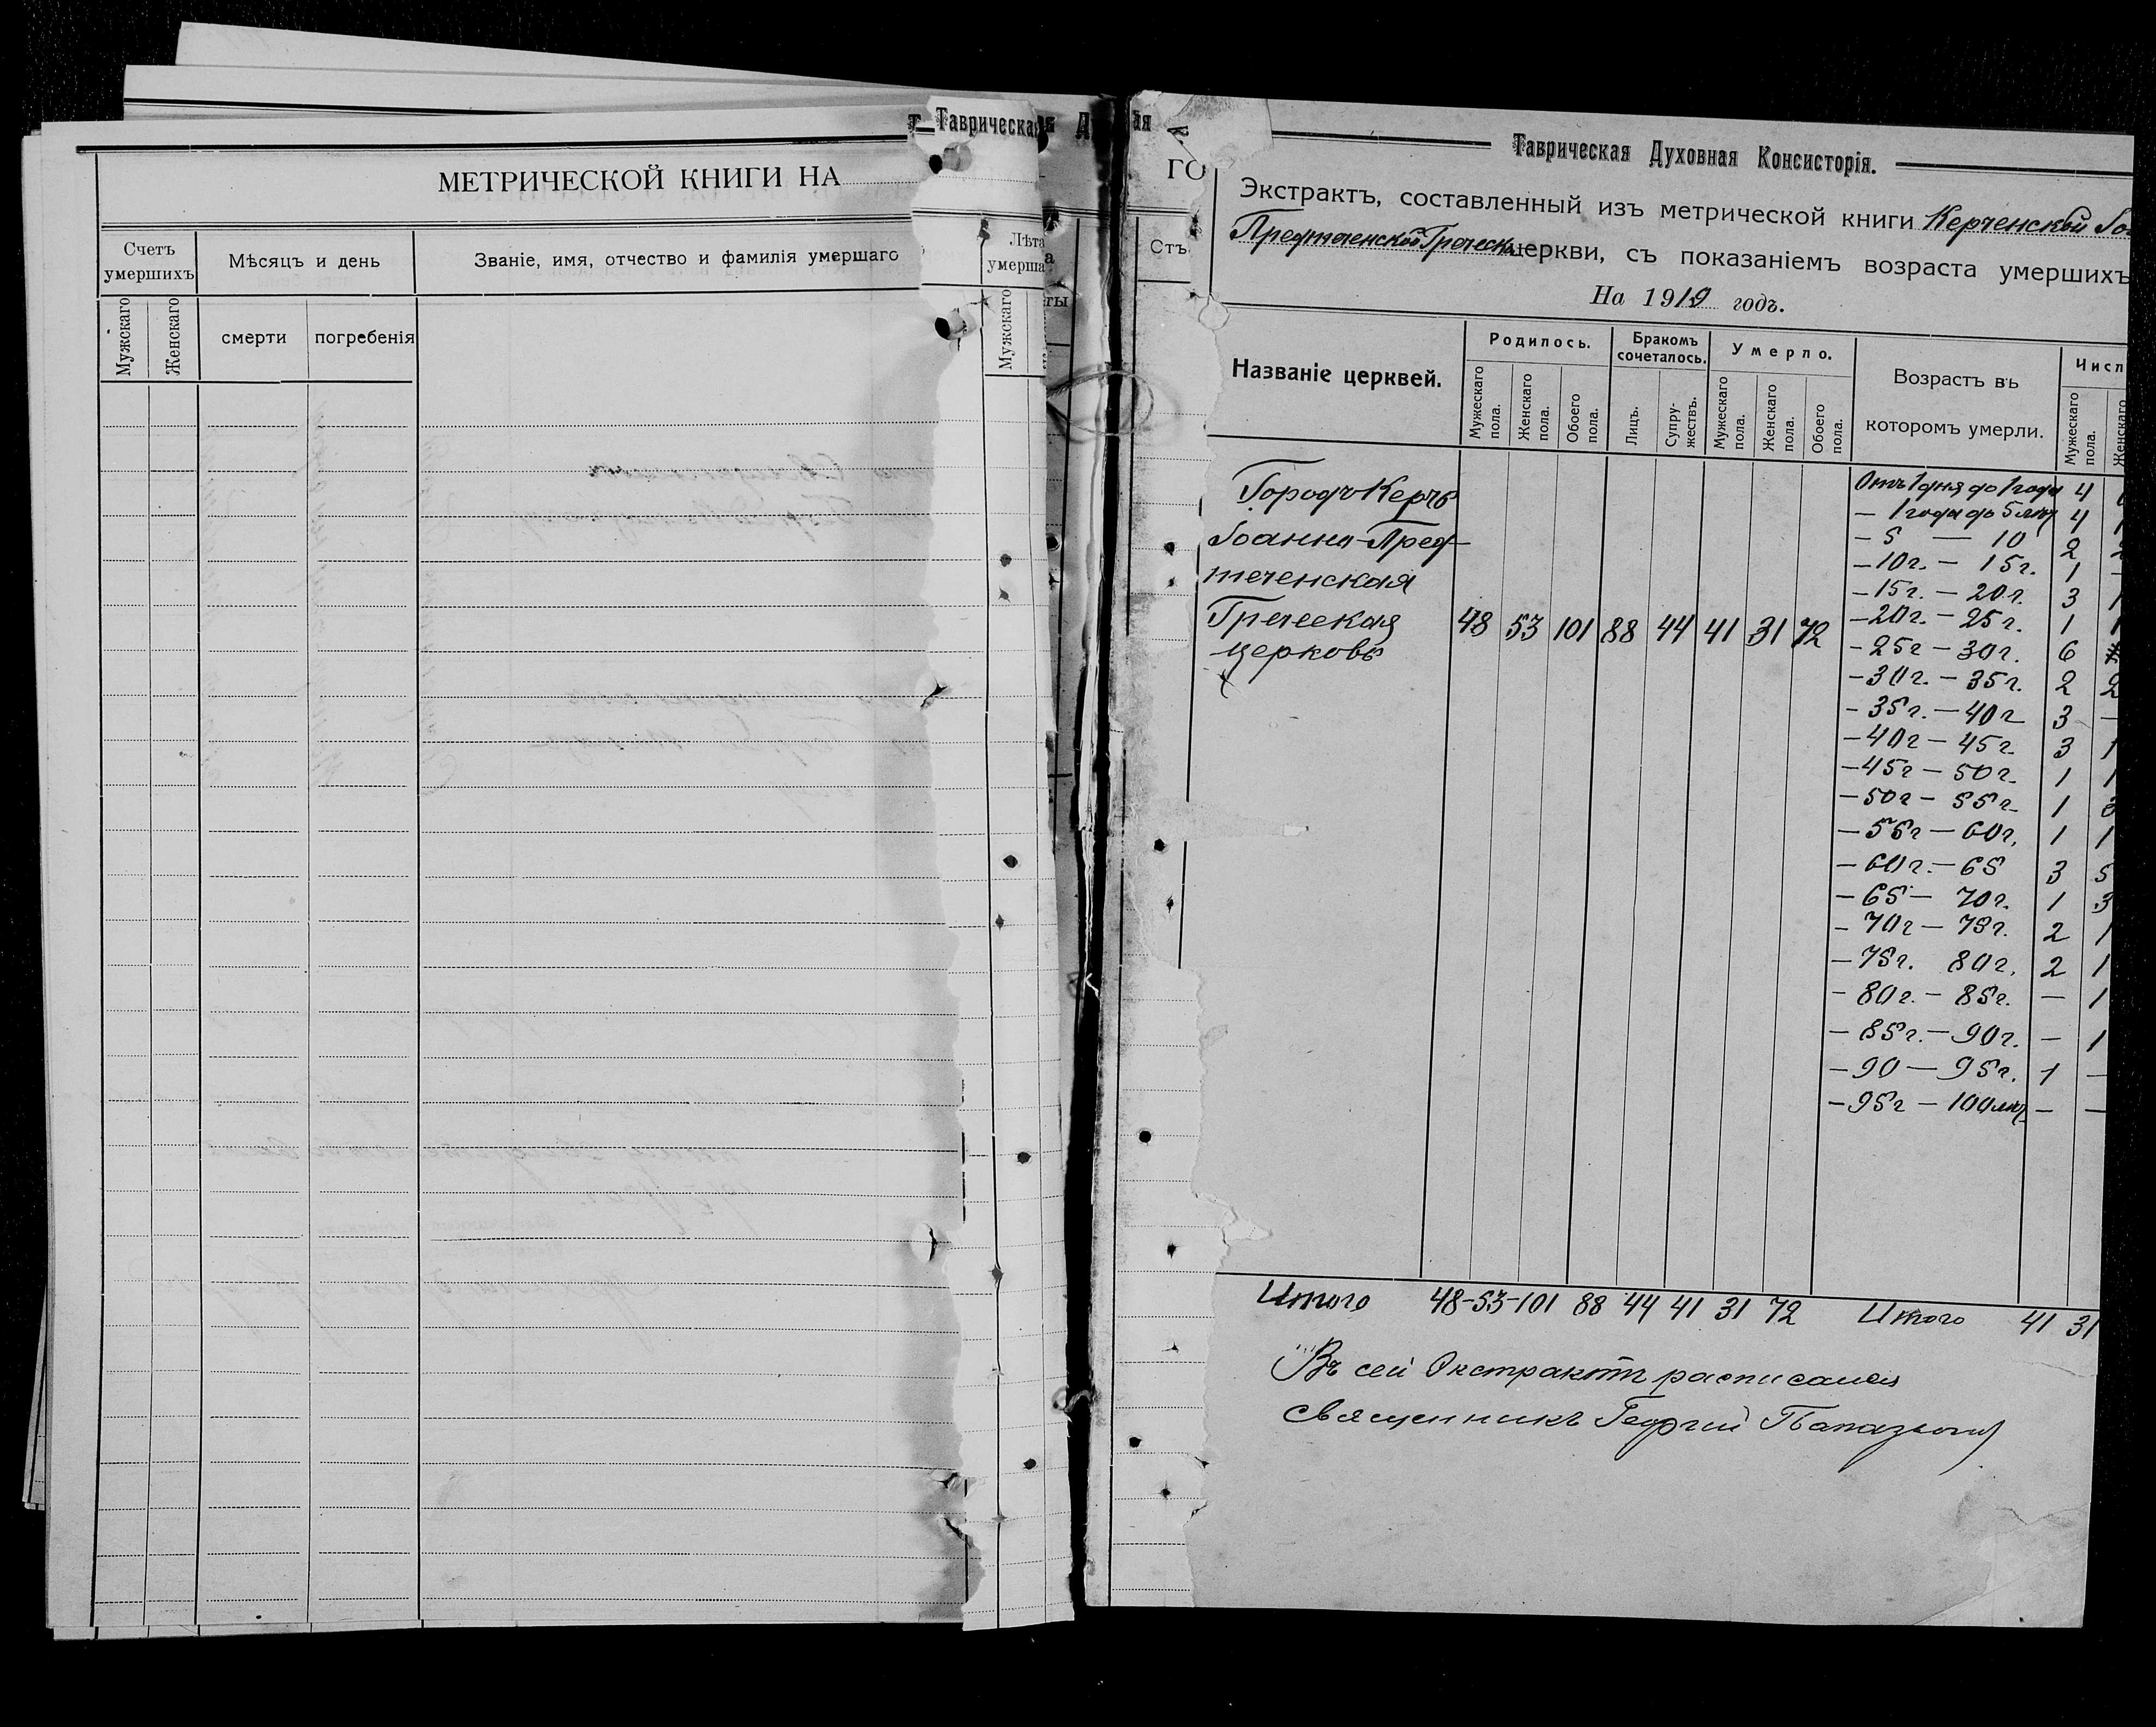 Таврическая
МЕТРИЧЕСКОЙ КНИГИ НА
Счетъ умершихъ
Мѣсяцъ и день
Званіе, имя, отчество и фамилія умершаго
Лѣта
умерша
Мужскаго
Женскаго
смерти
погребенія
Мужскаго
ГО
Стъ
Таврическая Духовная Консисторія.
Экстрактъ, составленный изъ метрической книги Керченской
Предтеченской Греческ церкви, съ показаніемъ возраста умершихъ
На 1919 годъ.
Названіе церквей.
Родилось.
Бракомъ сочеталось.
Умерло.
Возрастъ въ которомъ умерли.
Числ
Мужескаго пола.
Женскаго пола.
Обоего пола.
Лицъ.
Супружествъ.
Мужескаго пола.
Женскаго пола.
Обоего пола.
Мужескаго пола.
Женскаго
Городъ Керчь
Іоанно-Пред-
теченская
Греческая
церковь
48 53 101 88 44 41 31 72
Отъ 1 дня до 1 года 4
— 1 года до 5 лѣт 4 1
— 5 — 10 2 2
— 10 г. — 15 г. 1 —
— 15 г. — 20 г. 3 1
— 20 г. — 25 г. 1 1
— 25 г — 30 г. 6
— 30 г. — 35 г. 2 2
— 35 г. — 40 г 3 —
— 40 г — 45 г. 3 1
— 45 г — 50 г. 1 1
— 50 г — 55 г. 1 3
— 55 г — 60 г. 1 1
— 60 г. — 65 3 5
— 65 — 70 г. 1 3
— 70 г — 75 г. 2 1
— 75 г. 80 г. 2 1
— 80 г. — 85 г. — 1
— 85 г. — 90 г. — 1
— 90 — 95 г. 1 —
— 95 г — 100 лѣт — —
Итого 48-53-101 88 44 41 31 72 Итого 41 31
Въ сей Экстрактъ расписался
Священникъ Георгій